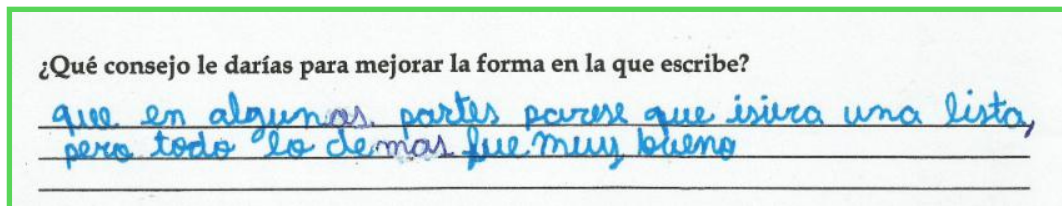 ¿Qué consejo le darías para mejorar la forma en la que escribe?
que en algunas partes parese que isiera una lista,
pero todo lo demas fue muy bueno